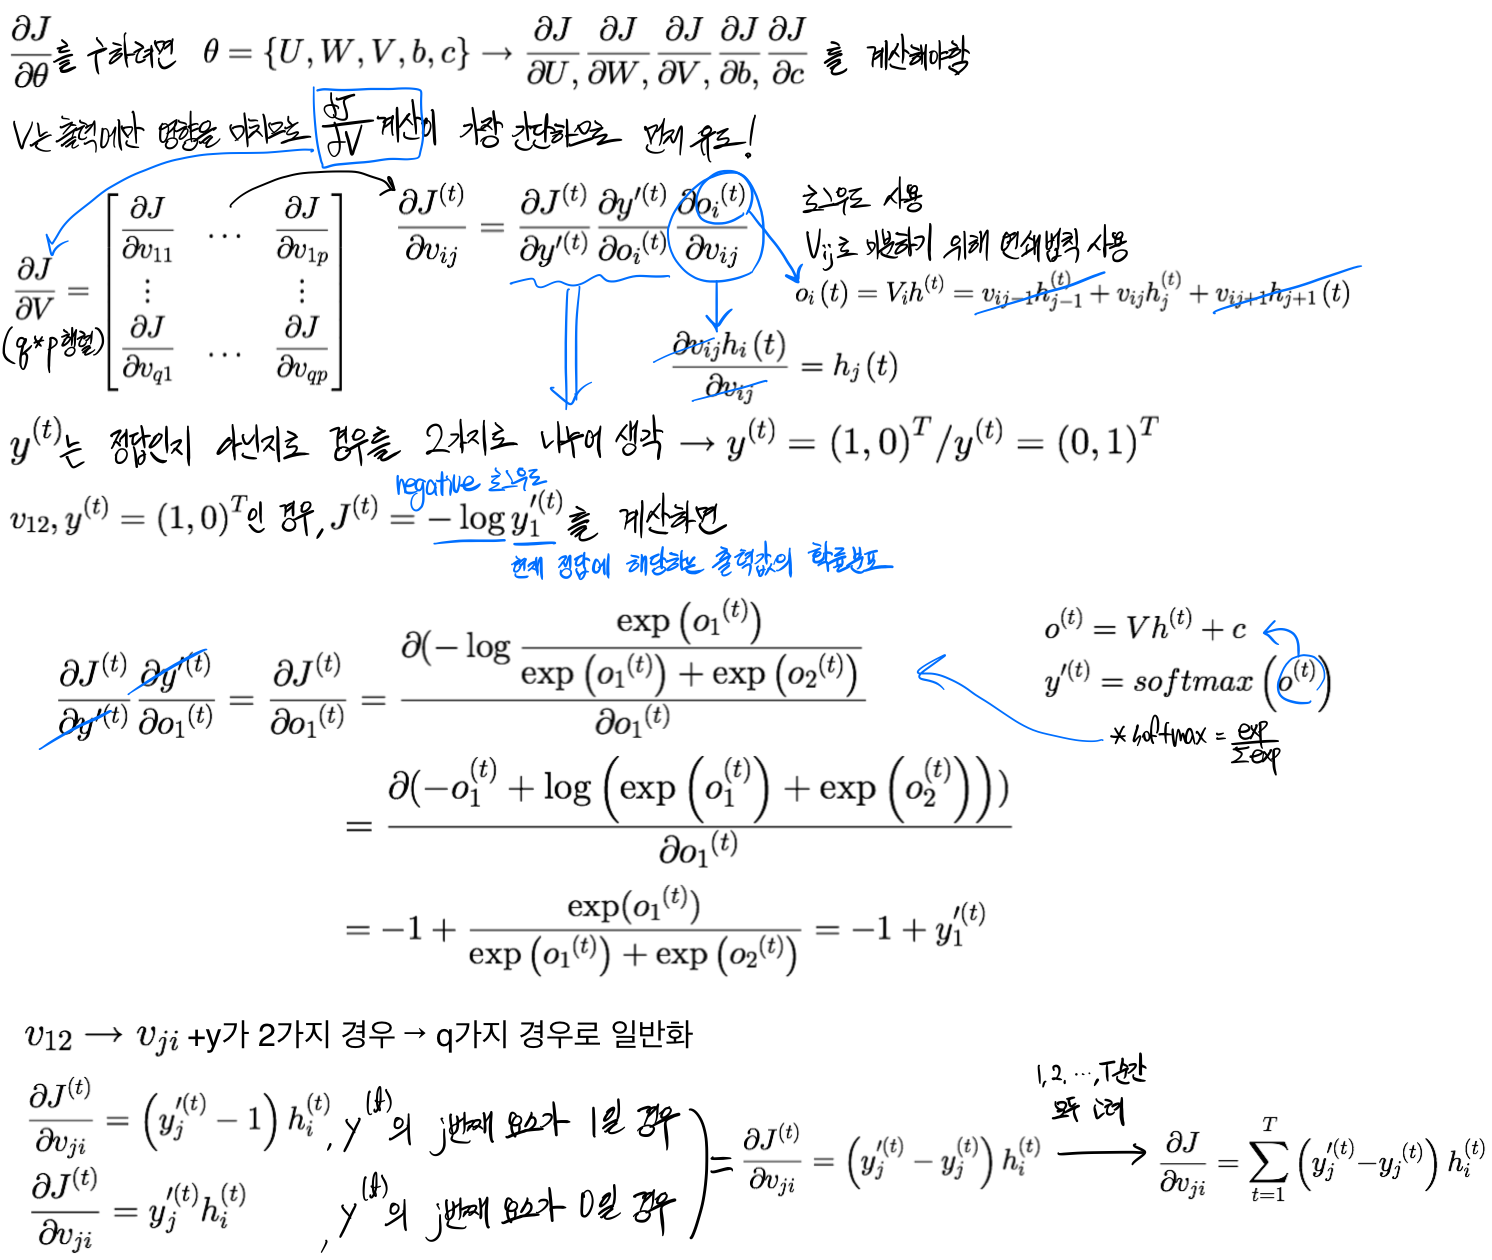 ∂J/∂θ를 구하려면 θ = {U, W, V, b, c} → ∂J/∂U, ∂J/∂W, ∂J/∂V, ∂J/∂b, ∂J/∂c 를 계산해야함
V는 출력에만 영향을 미치므로 ∂J/∂V 계산이 가장 간단하므로 먼저 유도!
∂J/∂V = [∂J/∂v₁₁ ⋯ ∂J/∂v₁ₚ ⋮ ⋮ ∂J/∂v_{q1} ⋯ ∂J/∂v_{qp}]
(q*p행렬)
∂J^{(t)}/∂v_{ij} = ∂J^{(t)}/∂y'^{(t)} ∂y'^{(t)}/∂o_i^{(t)} ∂o_i^{(t)}/∂v_{ij}
로그우도 사용
V_{ij}로 미분하기 위해 연쇄법칙 사용
o_i(t) = V_i h^{(t)} = v_{ij−1}h_{j−1}^{(t)} + v_{ij}h_j^{(t)} + v_{ij+1}h_{j+1}(t)
∂v_{ij}h_i(t)/∂v_{ij} = h_j(t)
y^{(t)}는 정답인지 아닌지로 경우를 2가지로 나누어 생각 → y^{(t)} = (1,0)^T / y^{(t)} = (0,1)^T
negative 로그우도
v₁₂, y^{(t)} = (1,0)^T인 경우, J^{(t)} = −log y₁'^{(t)} 를 계산하면
현재 정답에 해당하는 출력값의 확률분포
∂J^{(t)}/∂y'^{(t)} ∂y'^{(t)}/∂o₁^{(t)} = ∂J^{(t)}/∂o₁^{(t)} = ∂(−log exp(o₁^{(t)})/(exp(o₁^{(t)}) + exp(o₂^{(t)}))/∂o₁^{(t)}
o^{(t)} = Vh^{(t)} + c
y'^{(t)} = softmax(o^{(t)})
*softmax = exp/Σexp
= ∂(−o₁^{(t)} + log(exp(o₁^{(t)}) + exp(o₂^{(t)})))/∂o₁^{(t)}
= −1 + exp(o₁^{(t)})/(exp(o₁^{(t)}) + exp(o₂^{(t)})) = −1 + y₁'^{(t)}
v₁₂ → v_{ji} +y가 2가지 경우 → q가지 경우로 일반화
∂J^{(t)}/∂v_{ji} = (y_j'^{(t)} − 1) h_i^{(t)}, y^{(t)}의 j번째 요소가 1일 경우
∂J^{(t)}/∂v_{ji} = y_j'^{(t)}h_i^{(t)}, y^{(t)}의 j번째 요소가 0일 경우
= ∂J^{(t)}/∂v_{ji} = (y_j'^{(t)} − y_j^{(t)}) h_i^{(t)}
1, 2, ⋯, T순간
모두 고려
→ ∂J/∂v_{ji} = Σ_{t=1}^{T} (y_j'^{(t)} − y_j^{(t)}) h_i^{(t)}